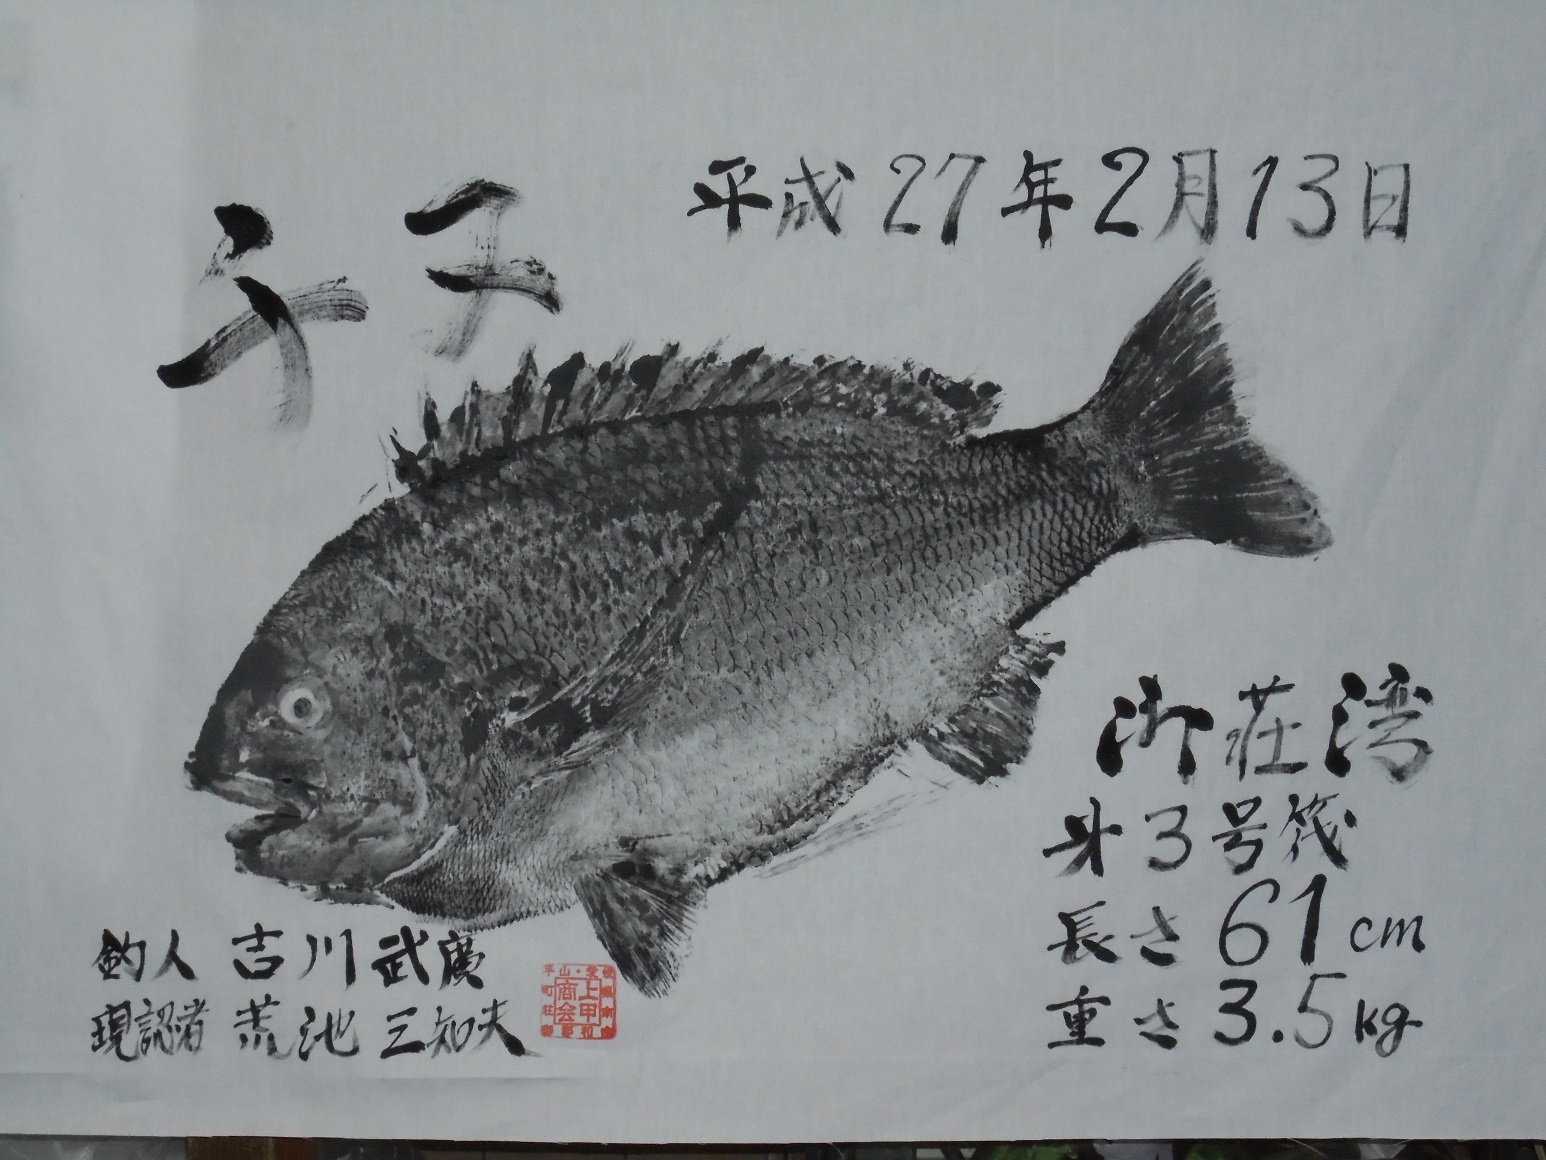 平成27年2月13日
チヌ
御荘湾
牙3号筏
長さ61cm
重さ3.5kg
釣人 吉川武廣
現認者 荒池三知夫
上甲
商会